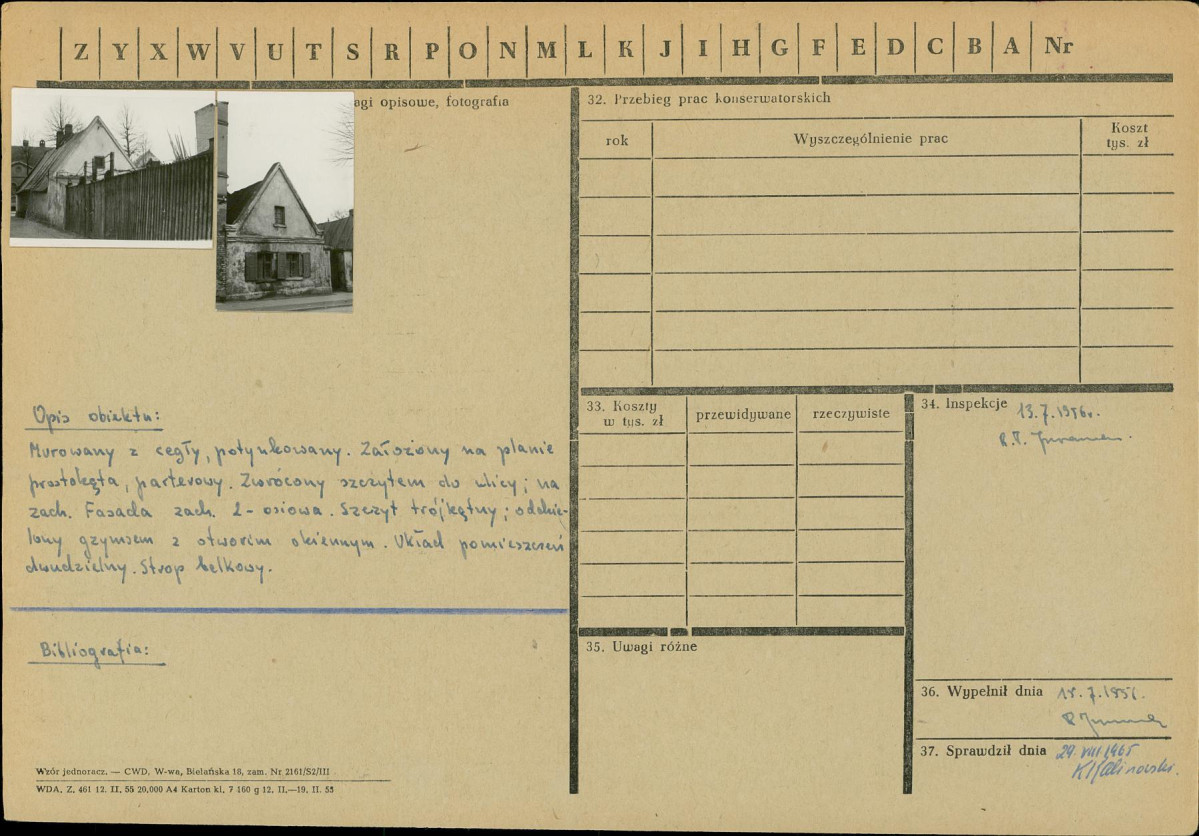 Z Y X W V U T S R P O N M L K J I H G F E D C B A Nr
agi opisowe, fotografia
Opis obiektu:
Murowany z cegły, potynkowany. Założony na planie
prostokąta, parterowy. Zwrócony szczytem do ulicy; na
zach. Fasada zach. 2-osiowa. Szczyt trójkątny; oddzie-
lony gzymsem z otworem okiennym. Układ pomieszczeń
dwudzielny. Strop belkowy.
Bibliografia:
Wzór jednoracz. — CWD, W-wa, Bielańska 18, zam. Nr 2161/S2/III
WDA. Z. 461 12. II. 55 20.000 A4 Karton kl. 7 160 g 12. II.—19. II. 55
32. Przebieg prac konserwatorskich
rok
Wyszczególnienie prac
Koszt
tys. zł
33. Koszty
w tys. zł
przewidywane
rzeczywiste
34. Inspekcje 13.7.1956r.
35. Uwagi różne
36. Wypełnił dnia 18.7.1956.
37. Sprawdził dnia 29.VIII 1965
K Kalinowski.